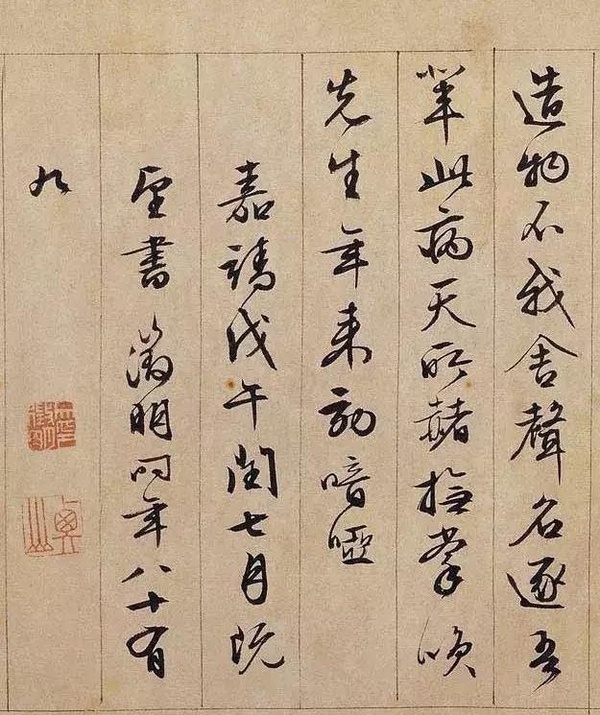 造物不我舍聲名逐吾
輩此病天所赭撫掌咲
先生年來効喑啞
嘉靖戊午閏七月既
望書徵明時年八十有
九